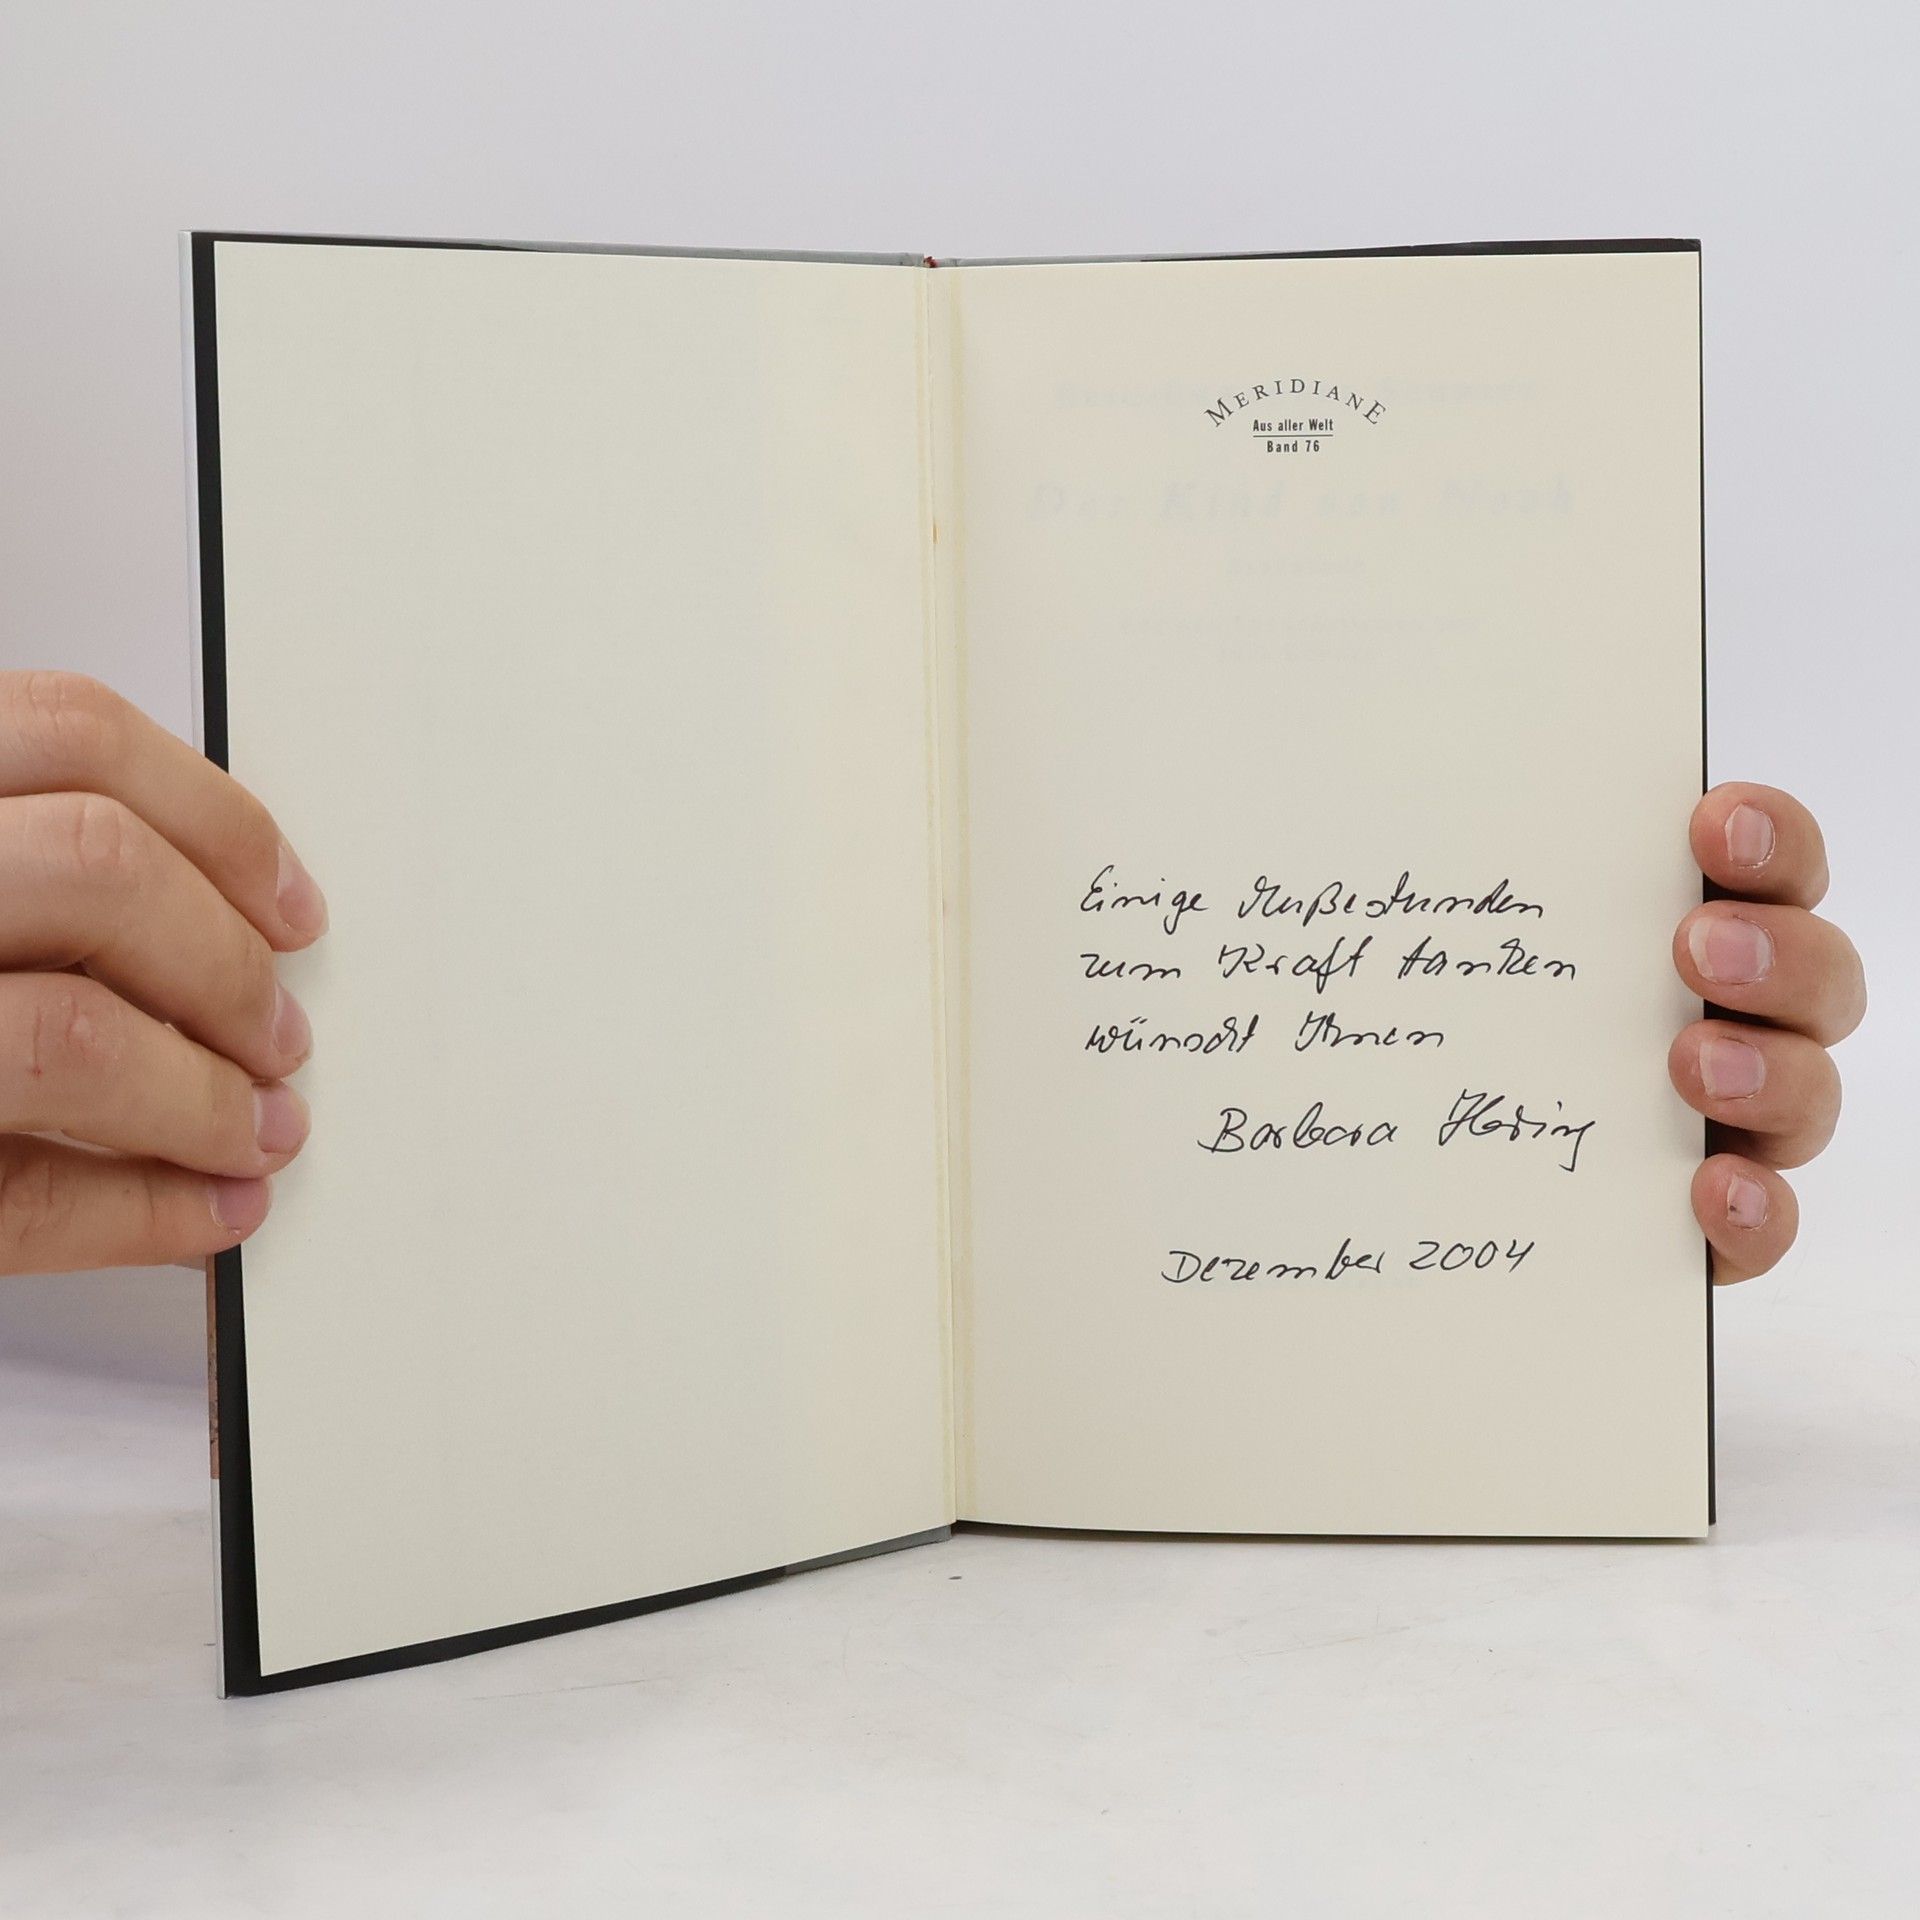 MERIDIANE
Aus aller Welt
Band 76
Das Kind von Noah
Einige Mußestunden
zum Kraft tanken
wünscht Ihnen
Barbara
Dezember 2004